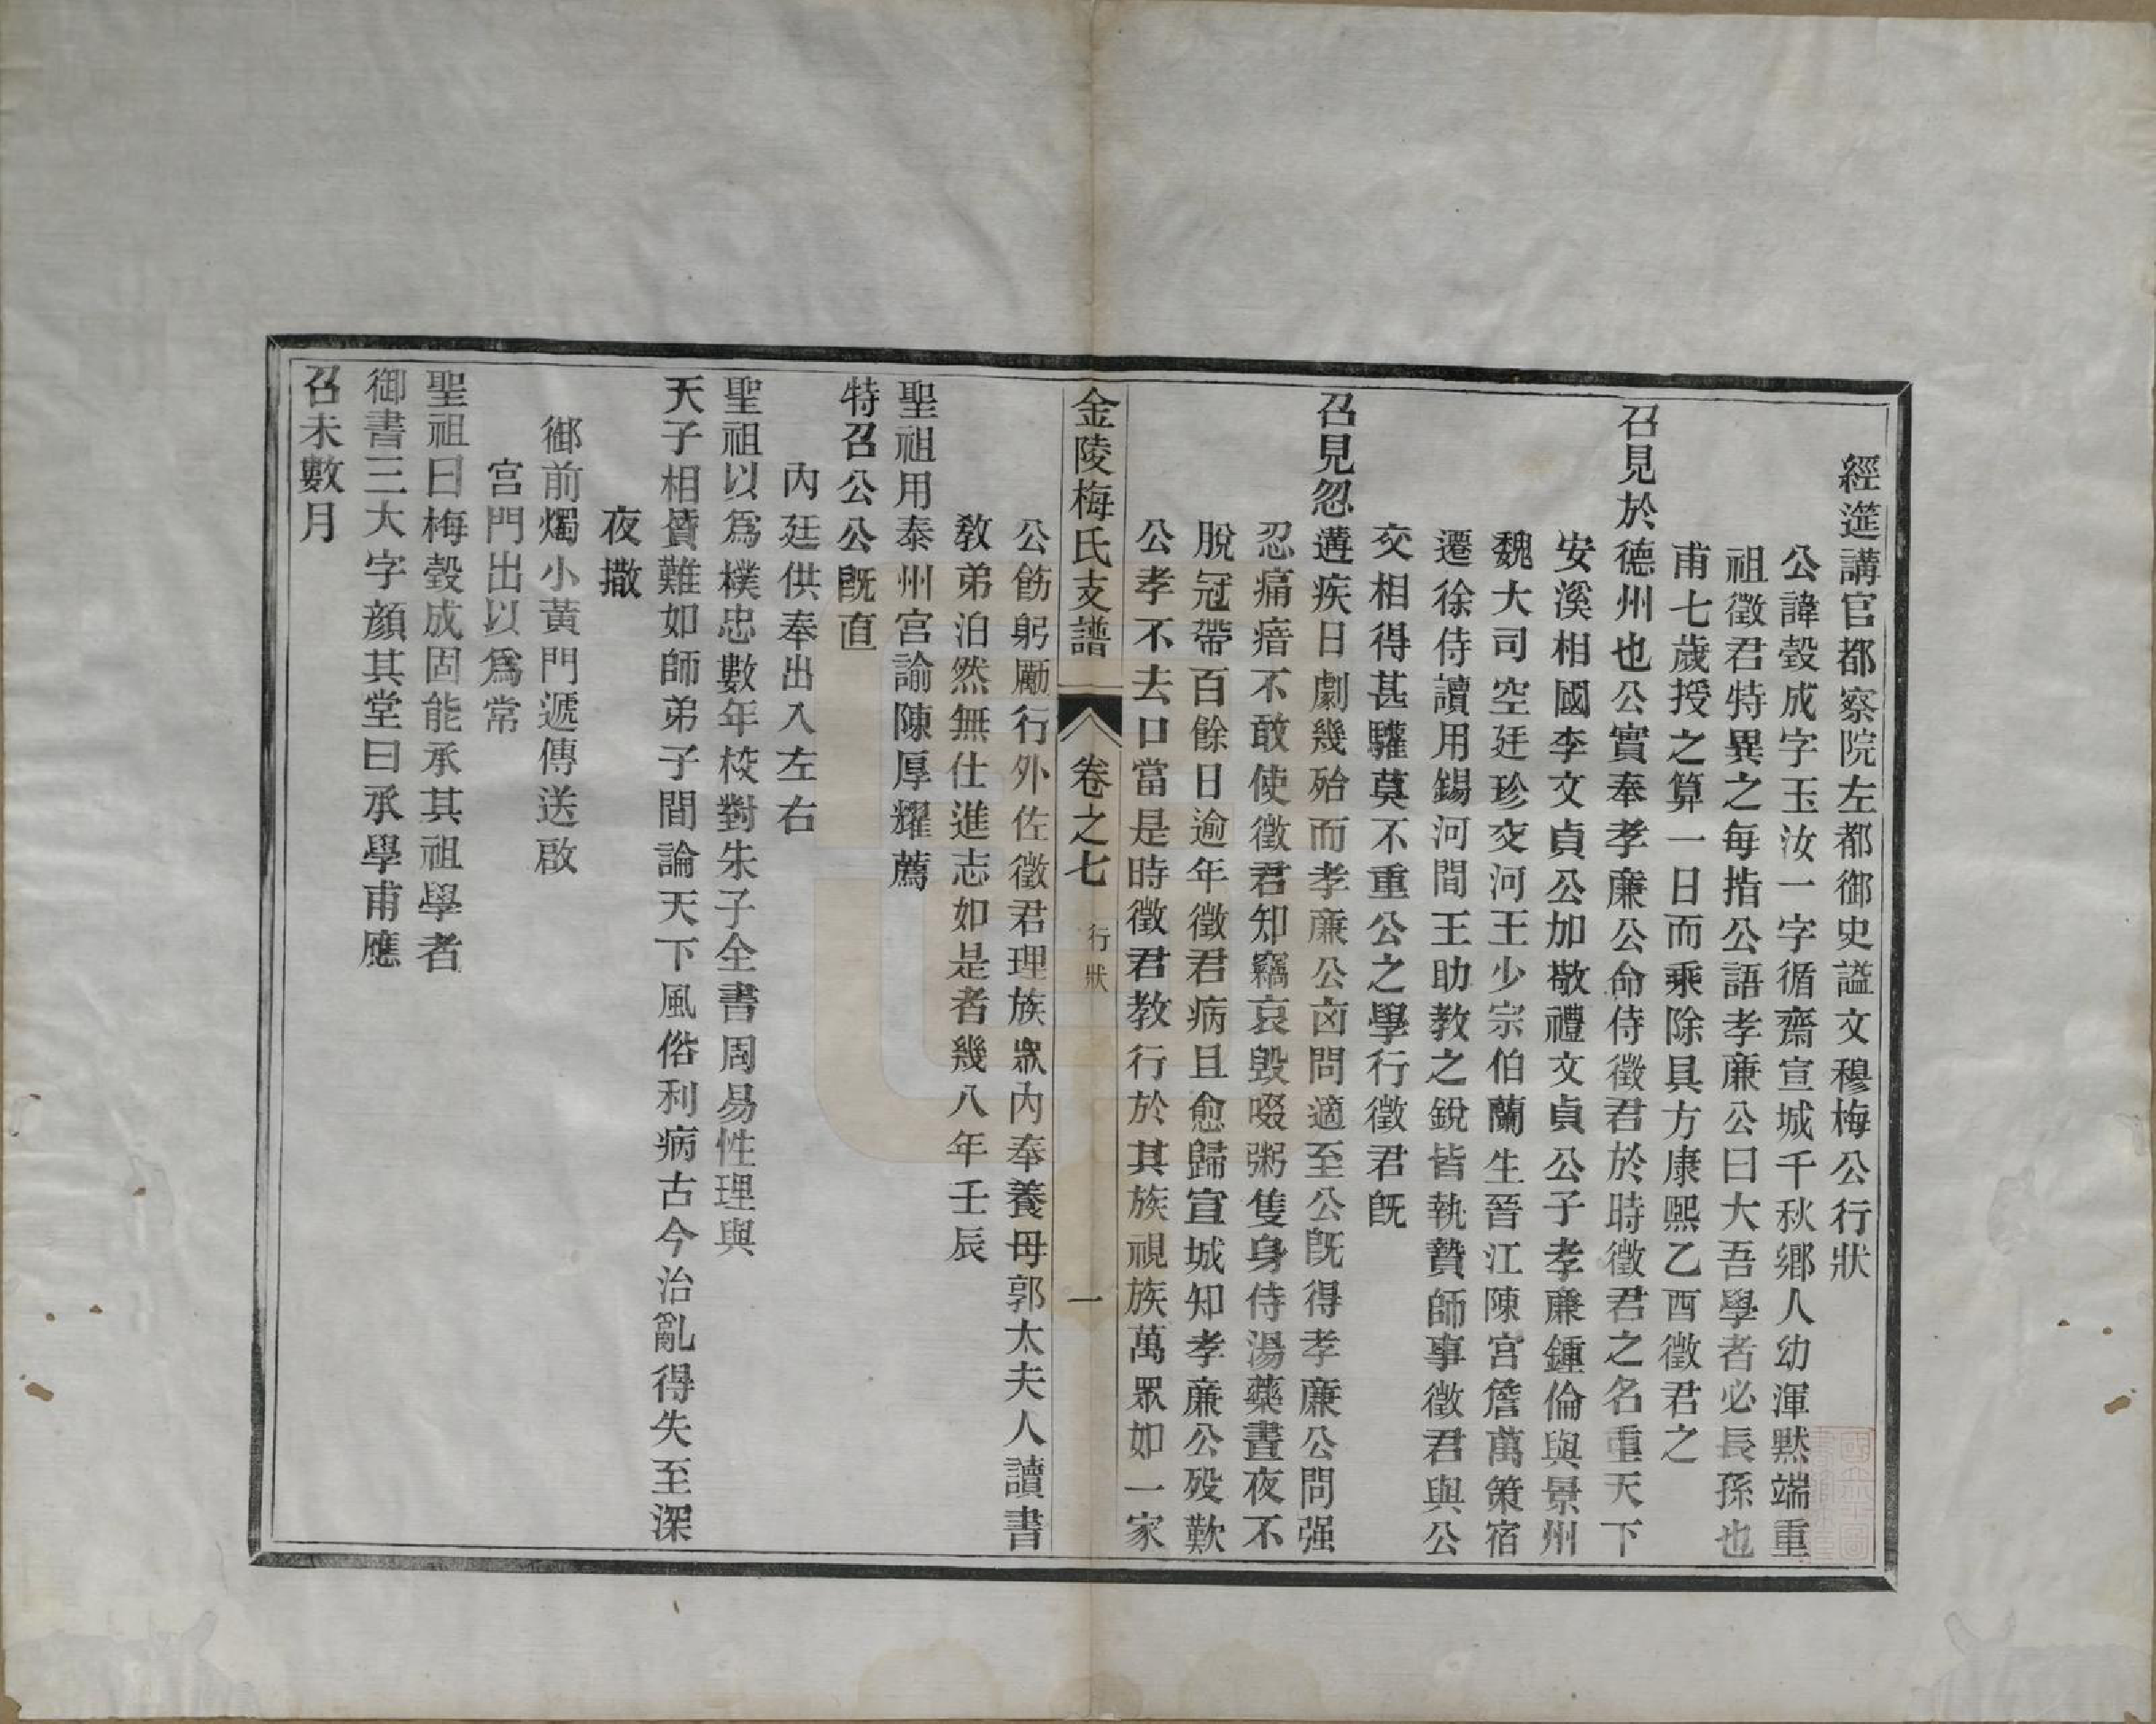 經筵講官都察院左都御史謚文穆梅公行狀
公諱瑴成字玉汝一字循齋宣城千秋鄉人幼渾默端重
祖徵君特異之每指公語孝廉公曰大吾學者必長孫也
甫七歲授之算一日而乘除具方康熙乙酉徵君之
召見於德州也公實奉孝廉公命侍徵君於時徵君之名重天下
安溪相國李文貞公加敬禮文貞公子孝廉鍾倫與景州
魏大司空廷珍交河王少宗伯蘭生晉江陳宮詹萬策宿
遷徐侍讀用錫河間王助教之銳皆執贄師事徵君與公
交相得甚驩莫不重公之學行徵君旣
召見忽遘疾日劇幾殆而孝廉公凶問適至公旣得孝廉公問强
忍痛瘖不敢使徵君知竊哀毁啜粥隻身侍湯藥晝夜不
脫冠帶百餘日逾年徵君病且愈歸宣城知孝廉公歿歎
公孝不去口當是時徵君教行於其族視族萬眾如一家
金陵梅氏支譜 卷之七 行狀 一
公飭躬勵行外佐徵君理族眾內奉養母郭太夫人讀書
敎弟泊然無仕進志如是者幾八年壬辰
聖祖用泰州宮諭陳厚耀薦
特召公公旣直
內廷供奉出入左右
聖祖以爲樸忠數年校對朱子全書周易性理與
天子相質難如師弟子間論天下風俗利病古今治亂得失至深
夜撒
御前燭小黃門遞傳送啟
宮門出以爲常
聖祖曰梅瑴成固能承其祖學者
御書三大字顏其堂曰承學甫應
召未數月